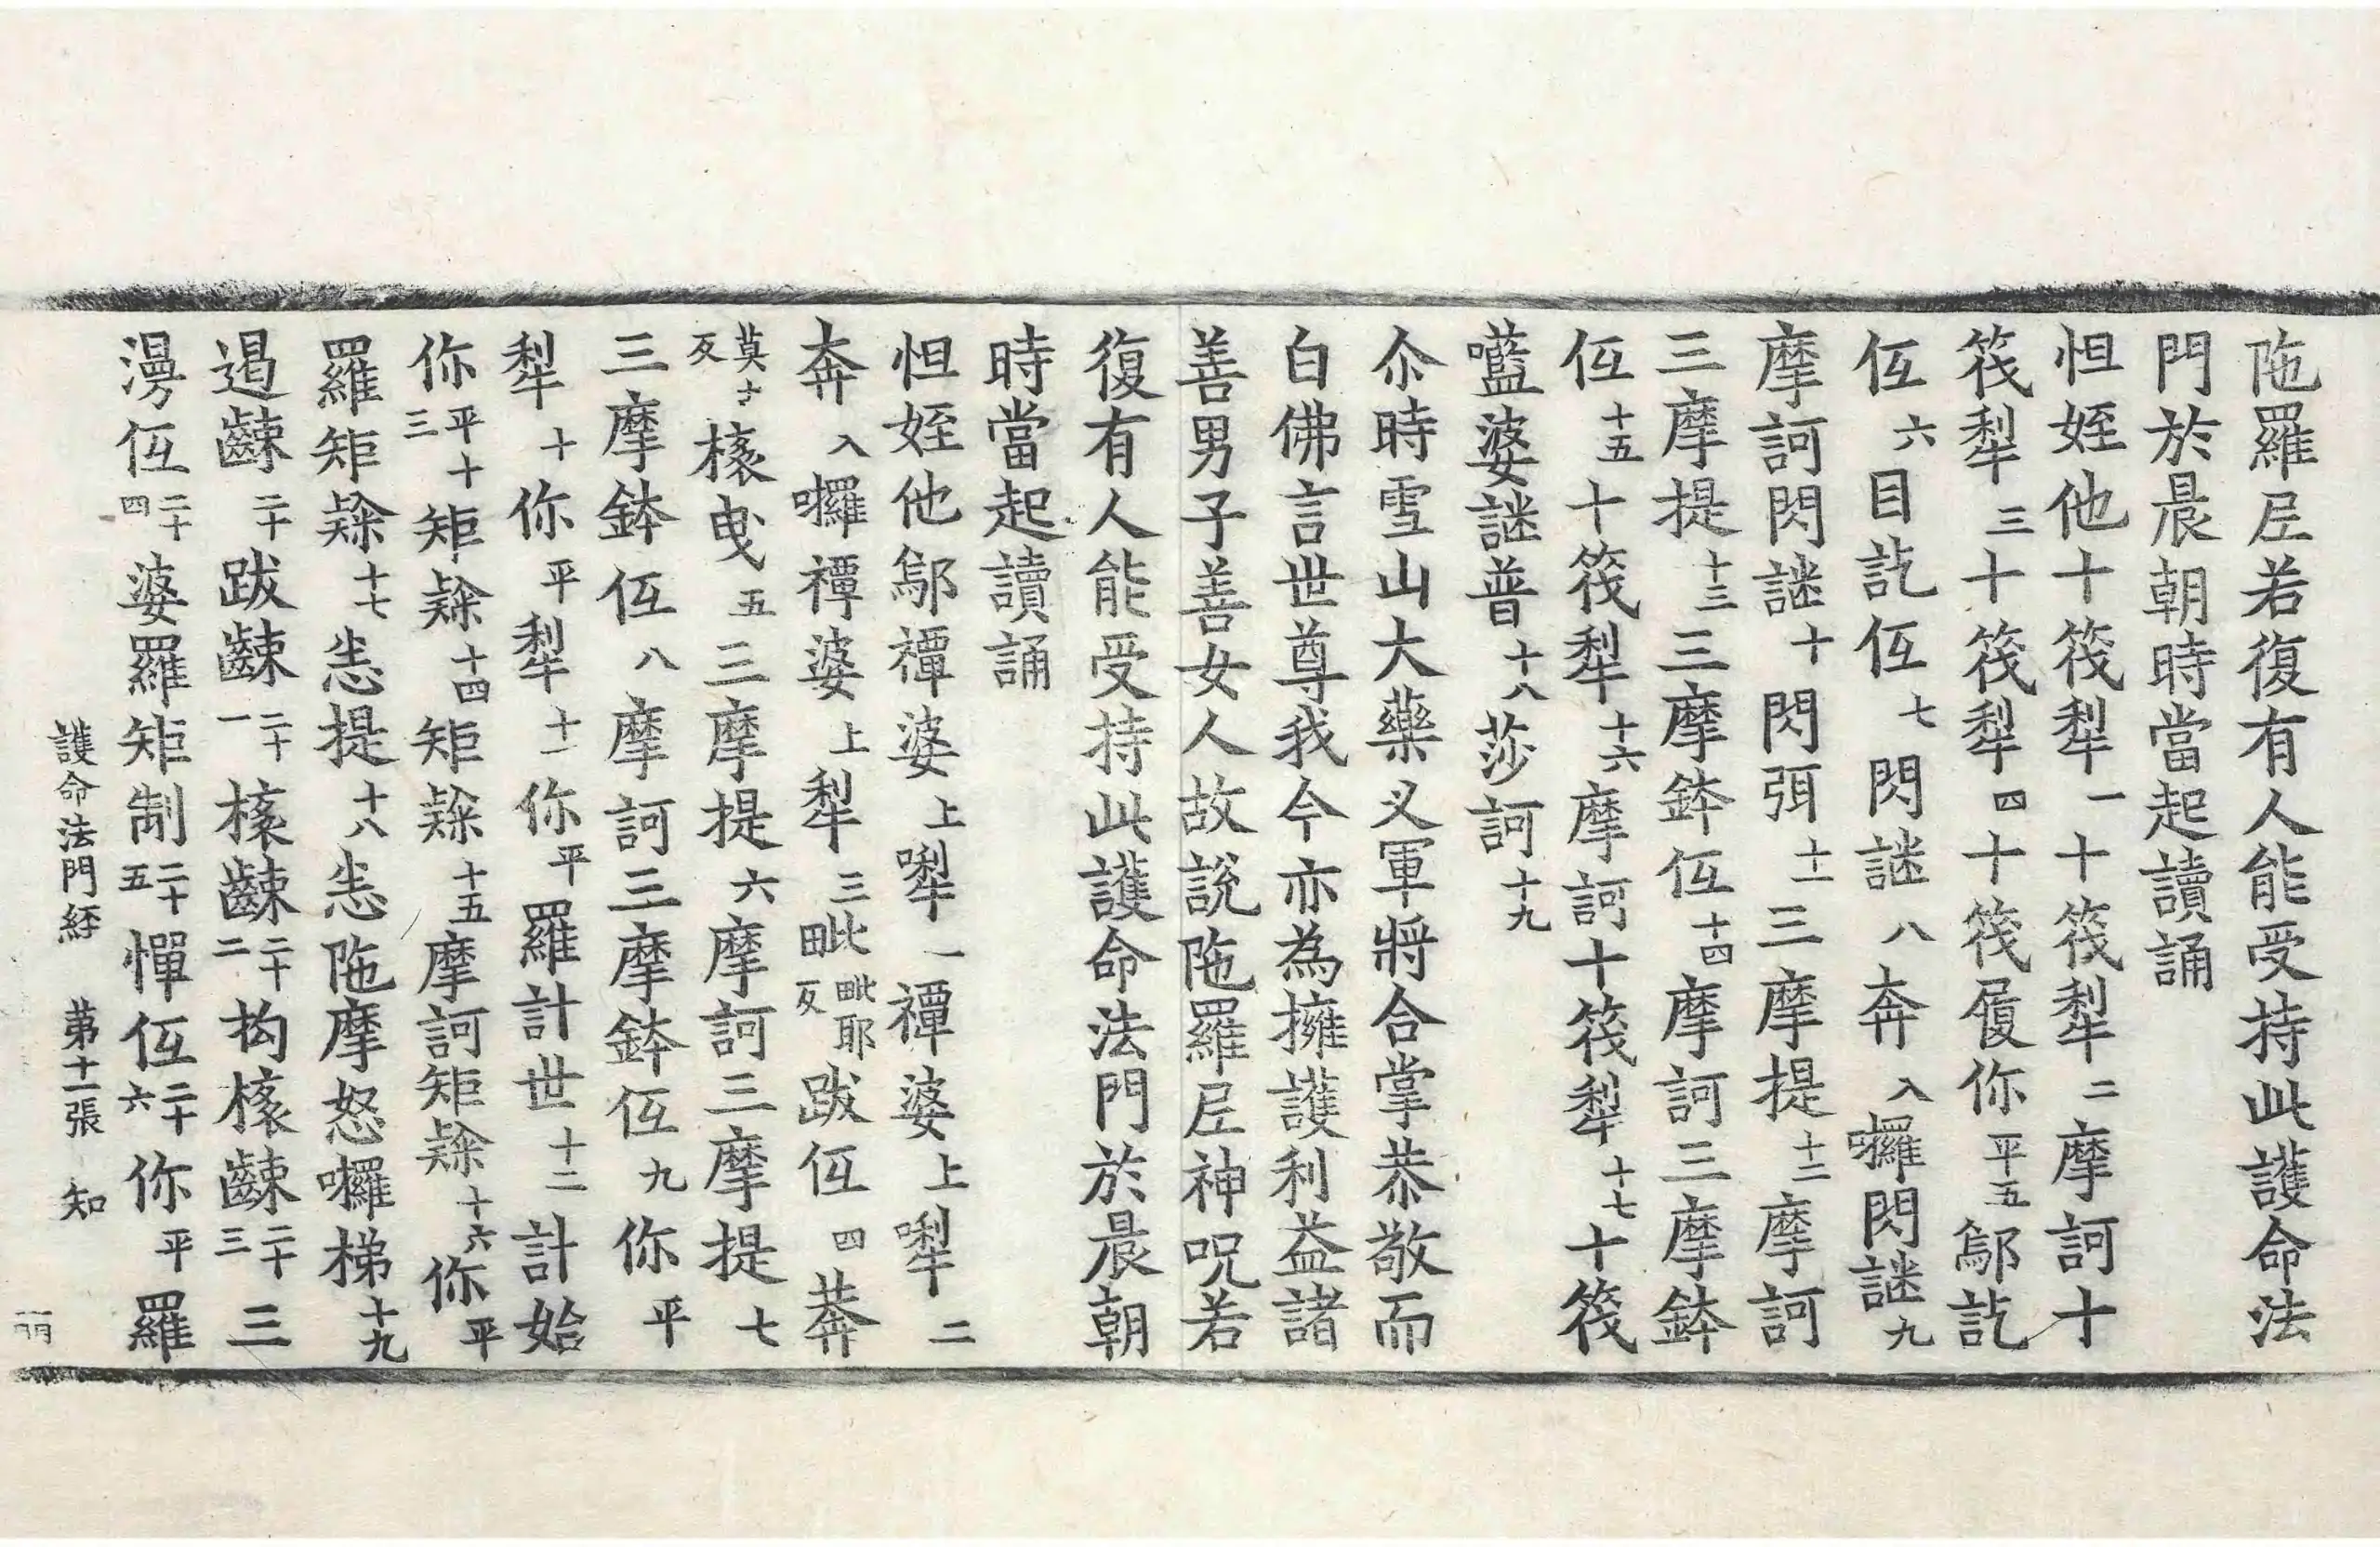 陁羅尼若復有人能受持此護命法
門於晨朝時當起讀誦
怛姪他十筏犁一十筏犁二摩訶十
筏犁三十筏犁四十筏履你平五鄔訖
仾六目訖仾七閃謎八奔入囉閃謎九
摩訶閃謎十閃弭十一三摩提十二摩訶
三摩提十三三摩鉢仾十四摩訶三摩鉢
仾十五十筏犁十六摩訶十筏犁十七十筏
㘕婆謎普十八莎訶十九
尒時雪山大藥义軍將合掌恭敬而
白佛言世尊我今亦為擁護利益諸
善男子善女人故說陁羅尼神呪若
復有人能受持此護命法門於晨朝
時當起讀誦
怛姪他鄔禫婆上㗚一禫婆上㗚二
奔入囉禫婆上犁三毗毗耶反跋仾四莾
莫反㯹曳五三摩提六摩訶三摩提七
三摩鉢仾八摩訶三摩鉢仾九你平
犁十你平犁十一你平羅計世十二計始
你平十三矩䅘十四矩䅘十五摩訶矩䅘十六你平
羅矩䅘十七恙提十八恙陁摩怒囉梯十九
遏䶩二十跋䶩二十一㯹䶩二十二抅㯹䶩二十三三
漫仾二十四婆羅矩制二十五憚仾二十六你平羅
護命法門経 苐十一張 知